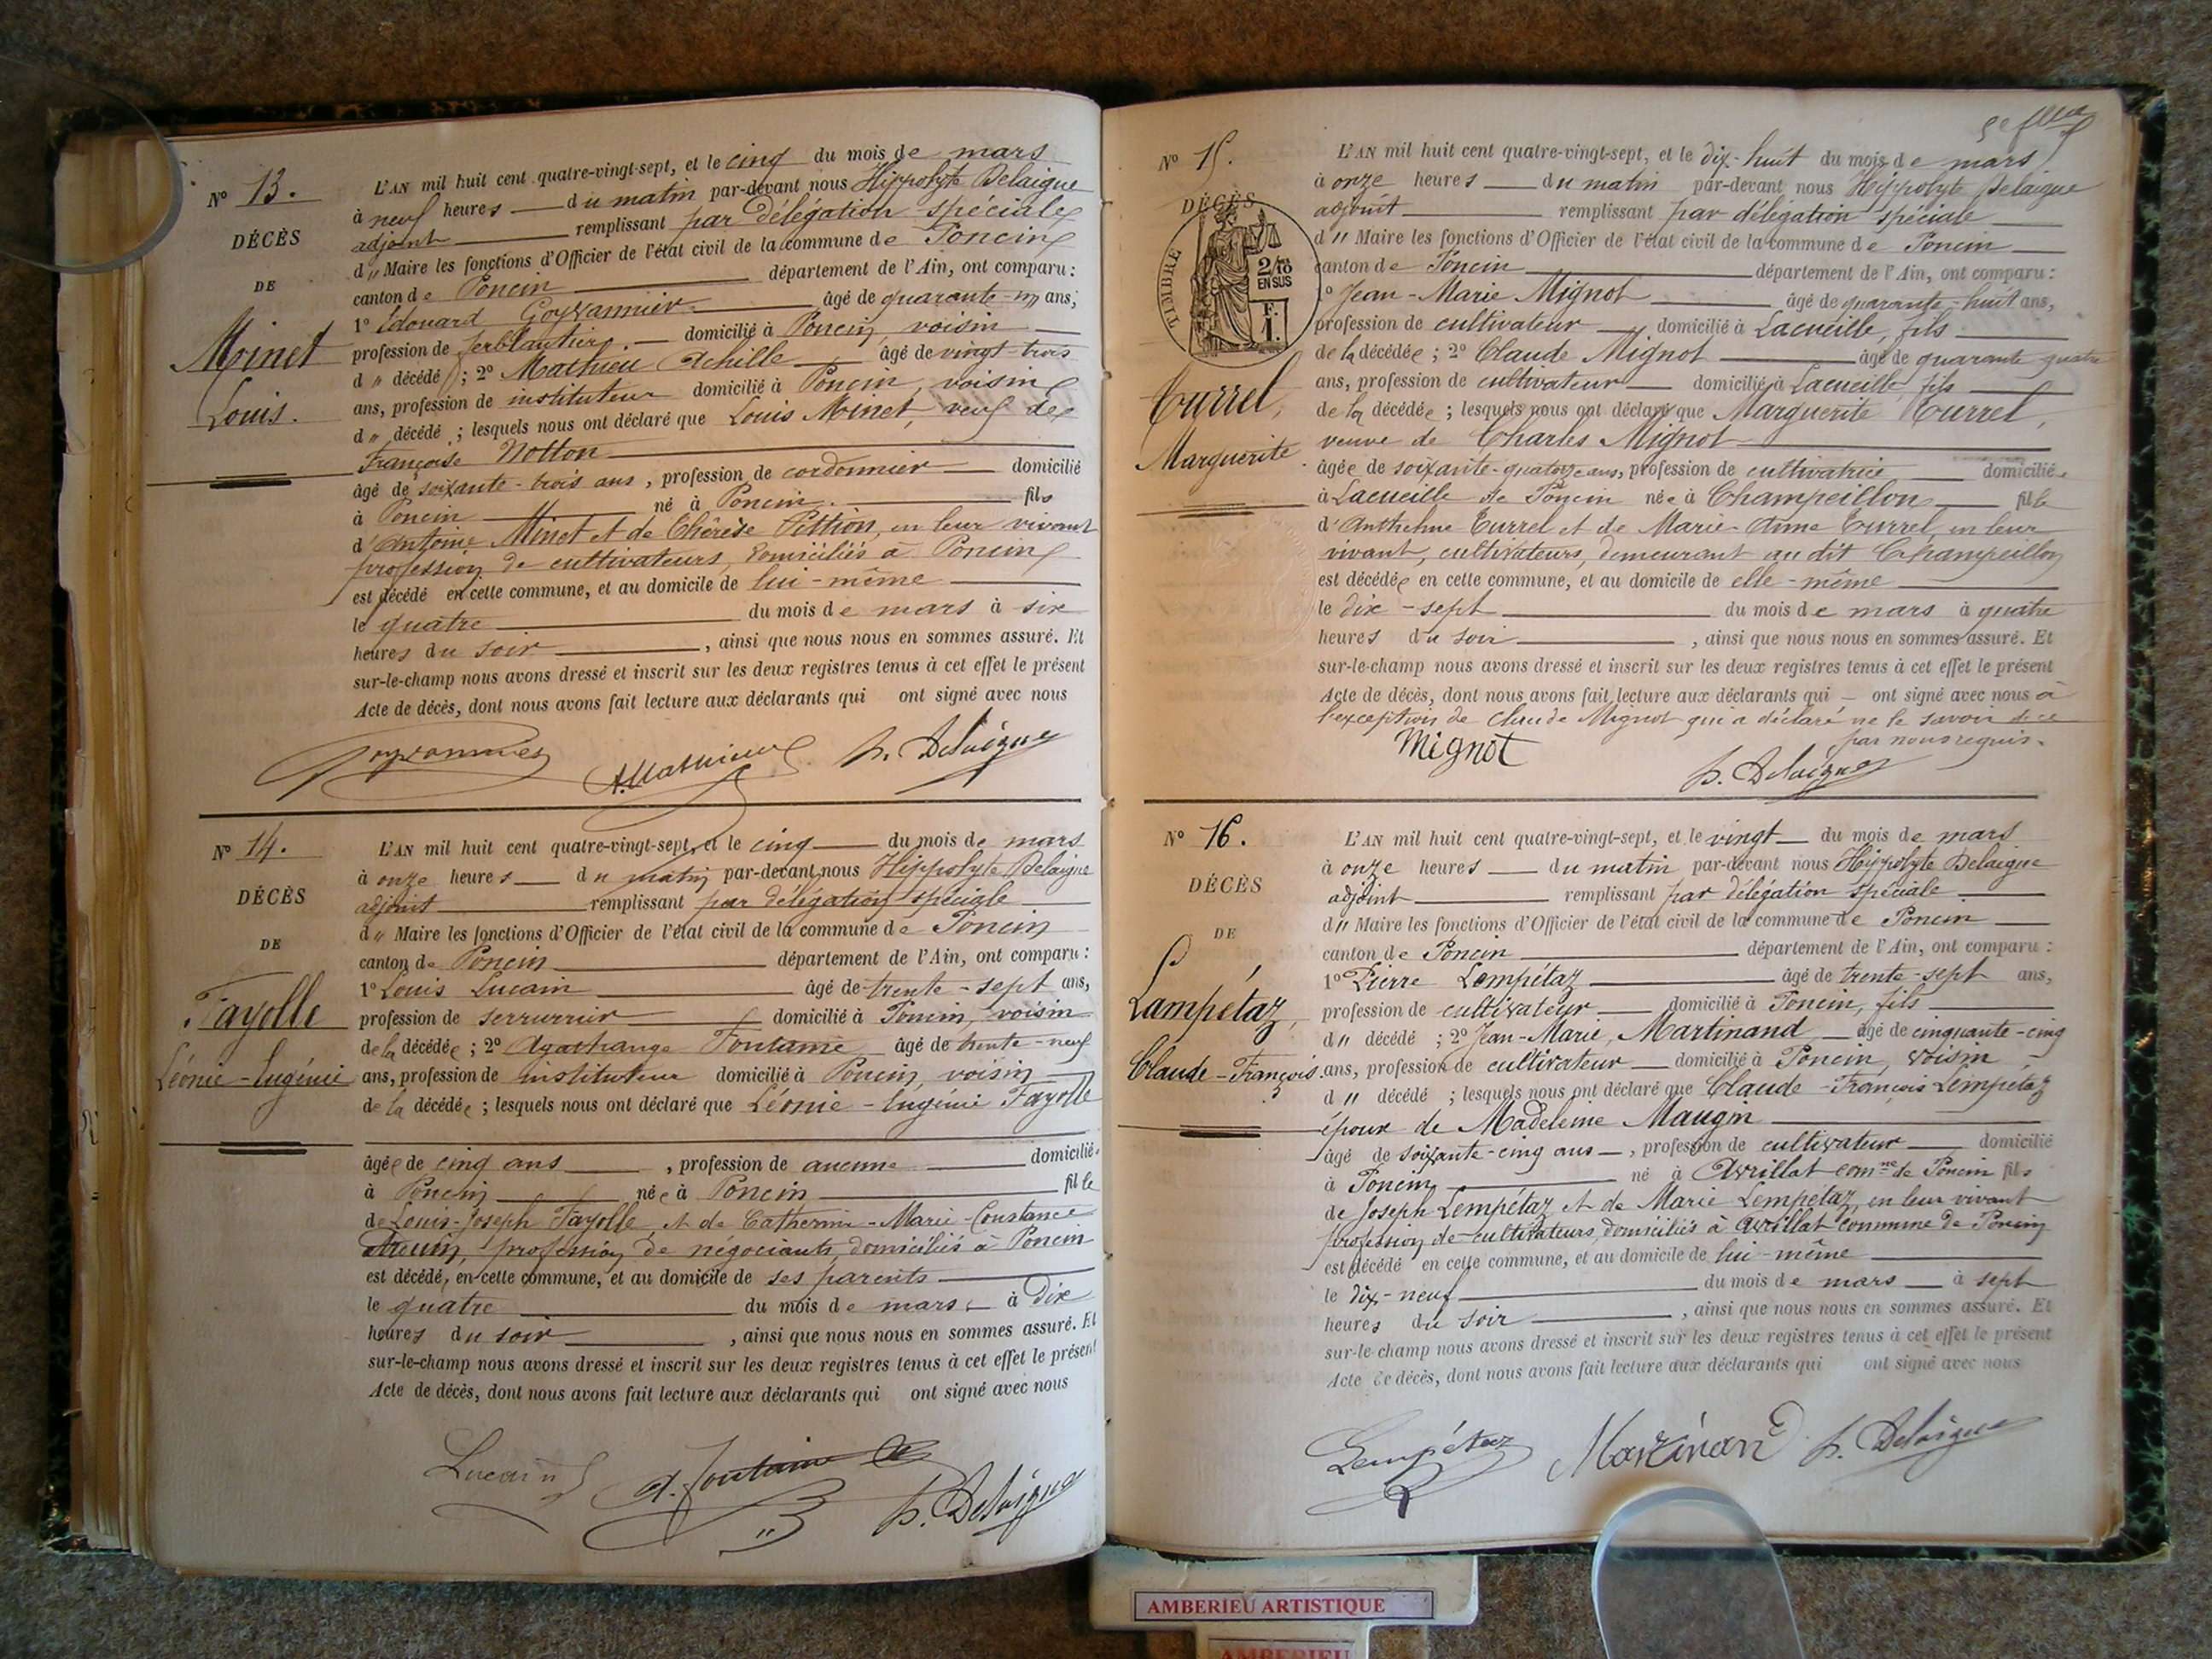 N° 13.
DÉCÈS
DE
Moinet
Louis.
L'AN mil huit cent quatre-vingt-sept, et le cinq du mois de mars
à neuf heures du matin par-devant nous Hippolyte Delaigue
adjoint remplissant par délégation spéciale
d" Maire les fonctions d'Officier de l'état civil de la commune de Poncin
canton de Poncin département de l'Ain, ont comparu :
1° Edouard âgé de quarante-un ans,
profession de ferblantier domicilié à Poncin, voisin
d" décédé ; 2° Mathieu Achille âgé de vingt-trois
ans, profession de instituteur domicilié à Poncin, voisin
d" décédé ; lesquels nous ont déclaré que Louis Moinet, veuf de
Françoise Notton
âgé de soixante-trois ans, profession de cordonnier domicilié
à Poncin né à Poncin. fils
d'Antoine Minet et de Thérèse Pittion, en leur vivant
profession de cultivateurs, domiciliés à Poncin
est décédé en cette commune, et au domicile de lui-même
le quatre du mois de mars à six
heures du soir , ainsi que nous nous en sommes assuré. Et
sur-le-champ nous avons dressé et inscrit sur les deux registres tenus à cet effet le présent
Acte de décès, dont nous avons fait lecture aux déclarants qui ont signé avec nous
A. Mathieu h. Delaigue
N° 14.
DÉCÈS
DE
Fayolle
Léonie-Eugénie
L'AN mil huit cent quatre-vingt-sept, et le cinq du mois de mars
à onze heures du matin par-devant nous Hippolyte Delaigue
adjoint remplissant par délégation spéciale
d" Maire les fonctions d'Officier de l'état civil de la commune de Poncin
canton de Poncin département de l'Ain, ont comparu :
1° Louis Lucain âgé de trente-sept ans,
profession de serrurrier domicilié à Poncin, voisin
de la décédée ; 2° Agathange Fontaine âgé de trente-neuf
ans, profession de instituteur domicilié à Poncin, voisin
de la décédée ; lesquels nous ont déclaré que Léonie-Eugénie Fayolle
âgée de cinq ans , profession de aucune domiciliée
à Poncin née à Poncin fille
de Louis-Joseph Fayolle et de Catherine-Marie-Constance
profession de négociants, domiciliés à Poncin
est décédée en cette commune, et au domicile de ses parents
le quatre du mois de mars à dix
heures du soir , ainsi que nous nous en sommes assuré. Et
sur-le-champ nous avons dressé et inscrit sur les deux registres tenus à cet effet le présent
Acte de décès, dont nous avons fait lecture aux déclarants qui ont signé avec nous
Lucain A. Fontaine h. Delaigue
N° 15.
DÉCÈS
TIMBRE
2/10 EN SUS
F. 1.
Turrel,
Marguerite.
L'AN mil huit cent quatre-vingt-sept, et le dix-huit du mois de mars
à onze heures du matin par-devant nous Hippolyte Delaigue
adjoint remplissant par délégation spéciale
d" Maire les fonctions d'Officier de l'état civil de la commune de Poncin
canton de Poncin département de l'Ain, ont comparu :
1° Jean-Marie Mignot âgé de quarante-huit ans,
profession de cultivateur domicilié à Lacueille, fils
de la décédée ; 2° Claude Mignot âgé de quarante quatre
ans, profession de cultivateur domicilié à Lacueille, fils
de la décédée ; lesquels nous ont déclaré que Marguerite Turrel,
veuve de Charles Mignot
âgée de soixante-quatorze ans, profession de cultivatrice domiciliée
à Lacueille de Poncin née à Champeillon fille
d'Anthelme Turrel et de Marie-Anne Turrel, en leur
vivant, cultivateurs, demeurant au dit Champeillon
est décédée en cette commune, et au domicile de elle-même
le dix-sept du mois de mars à quatre
heures du soir , ainsi que nous nous en sommes assuré. Et
sur-le-champ nous avons dressé et inscrit sur les deux registres tenus à cet effet le présent
Acte de décès, dont nous avons fait lecture aux déclarants qui ont signé avec nous à
l'exception de Claude Mignot qui a déclaré ne le savoir de ce
par nous requis.
Mignot
h. Delaigue
N° 16.
DÉCÈS
DE
Lampétaz,
Claude-François.
L'AN mil huit cent quatre-vingt-sept, et le vingt du mois de mars
à onze heures du matin par-devant nous Hippolyte Delaigue
adjoint remplissant par délégation spéciale
d" Maire les fonctions d'Officier de l'état civil de la commune de Poncin
canton de Poncin département de l'Ain, ont comparu :
1° Pierre Lempétaz âgé de trente-sept ans,
profession de cultivateur domicilié à Poncin, fils
d" décédé ; 2° Jean-Marie Martinand âgé de cinquante-cinq
ans, profession de cultivateur domicilié à Poncin, voisin
d" décédé ; lesquels nous ont déclaré que Claude-François Lempétaz
époux de Madeleine Maugin
âgé de soixante-cinq ans , profession de cultivateur domicilié
à Poncin né à Avrillat com.ne de Poncin fils
de Joseph Lempétaz et de Marie Lempétaz, en leur vivant
profession de cultivateurs, domiciliés à Avrillat commune de Poncin
est décédé en cette commune, et au domicile de lui-même
le dix-neuf du mois de mars à sept
heures du soir , ainsi que nous nous en sommes assuré. Et
sur-le-champ nous avons dressé et inscrit sur les deux registres tenus à cet effet le présent
Acte de décès, dont nous avons fait lecture aux déclarants qui ont signé avec nous
Lempétaz Martinand h. Delaigue
AMBERIEU ARTISTIQUE
AMBERIEU